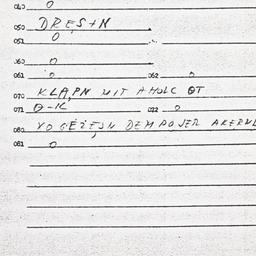 040 0
050 DRESTN
051 0
060 0
061 0 062 0
070 KLAPN MIT A HOLC OT
071 0-K 072 0
080 VO GEŻEJN DEM POJER
081 0